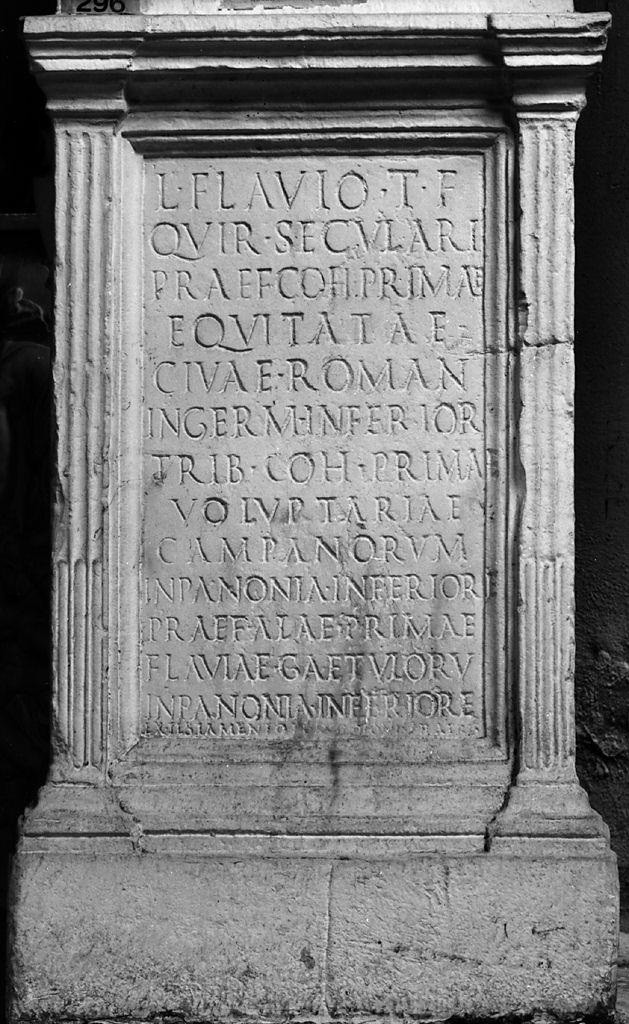 296
L·FLAVIO·T·F
QVIR·SECVLARI
PRAEFCOH·PRIMAE
EQVITATAE
CIVAE·ROMAN
INGERM·INFERIOR
TRIB·COH·PRIMAE
VOLVPTARIAE
CAMPANORVM
INPANONIA·INFERIORE
PRAEF·ALAE·PRIMAE
FLAVIAE·GAETVLORV
INPANONIA·INFERIORE